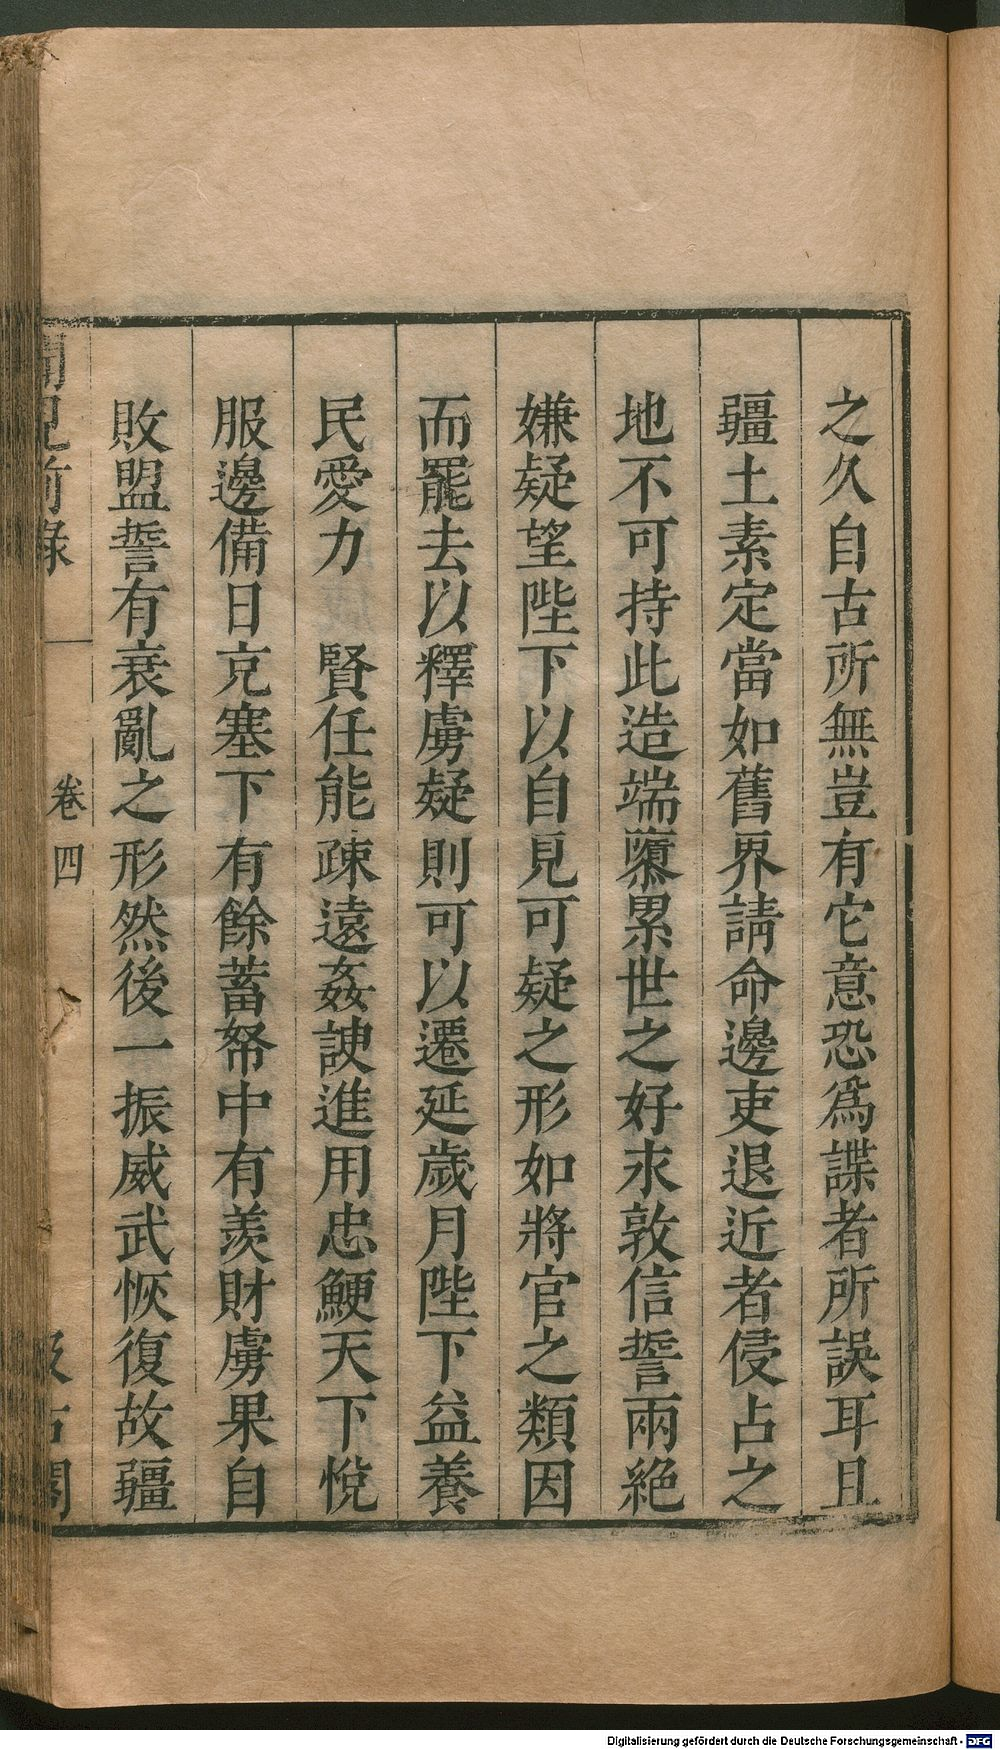 之久自古所無豈有它意恐爲諜者所誤耳且
疆土素定當如舊界請命邊吏退近者侵占之
地不可持此造端隳累世之好求敦信誓兩絶
嫌疑望陛下以自見可疑之形如將官之類因
而罷去以釋虜疑則可以遷延歲月陛下益養
民愛力　賢任能疎遠姦諛進用忠鯁天下悅
服邊備日充塞下有餘蓄帑中有羨財虜果自
敗盟誓有衰亂之形然後一振威武恢復故疆
聞見前錄
卷四
汲古閣
Digitalisierung gefördert durch die Deutsche Forschungsgemeinschaft - DFG